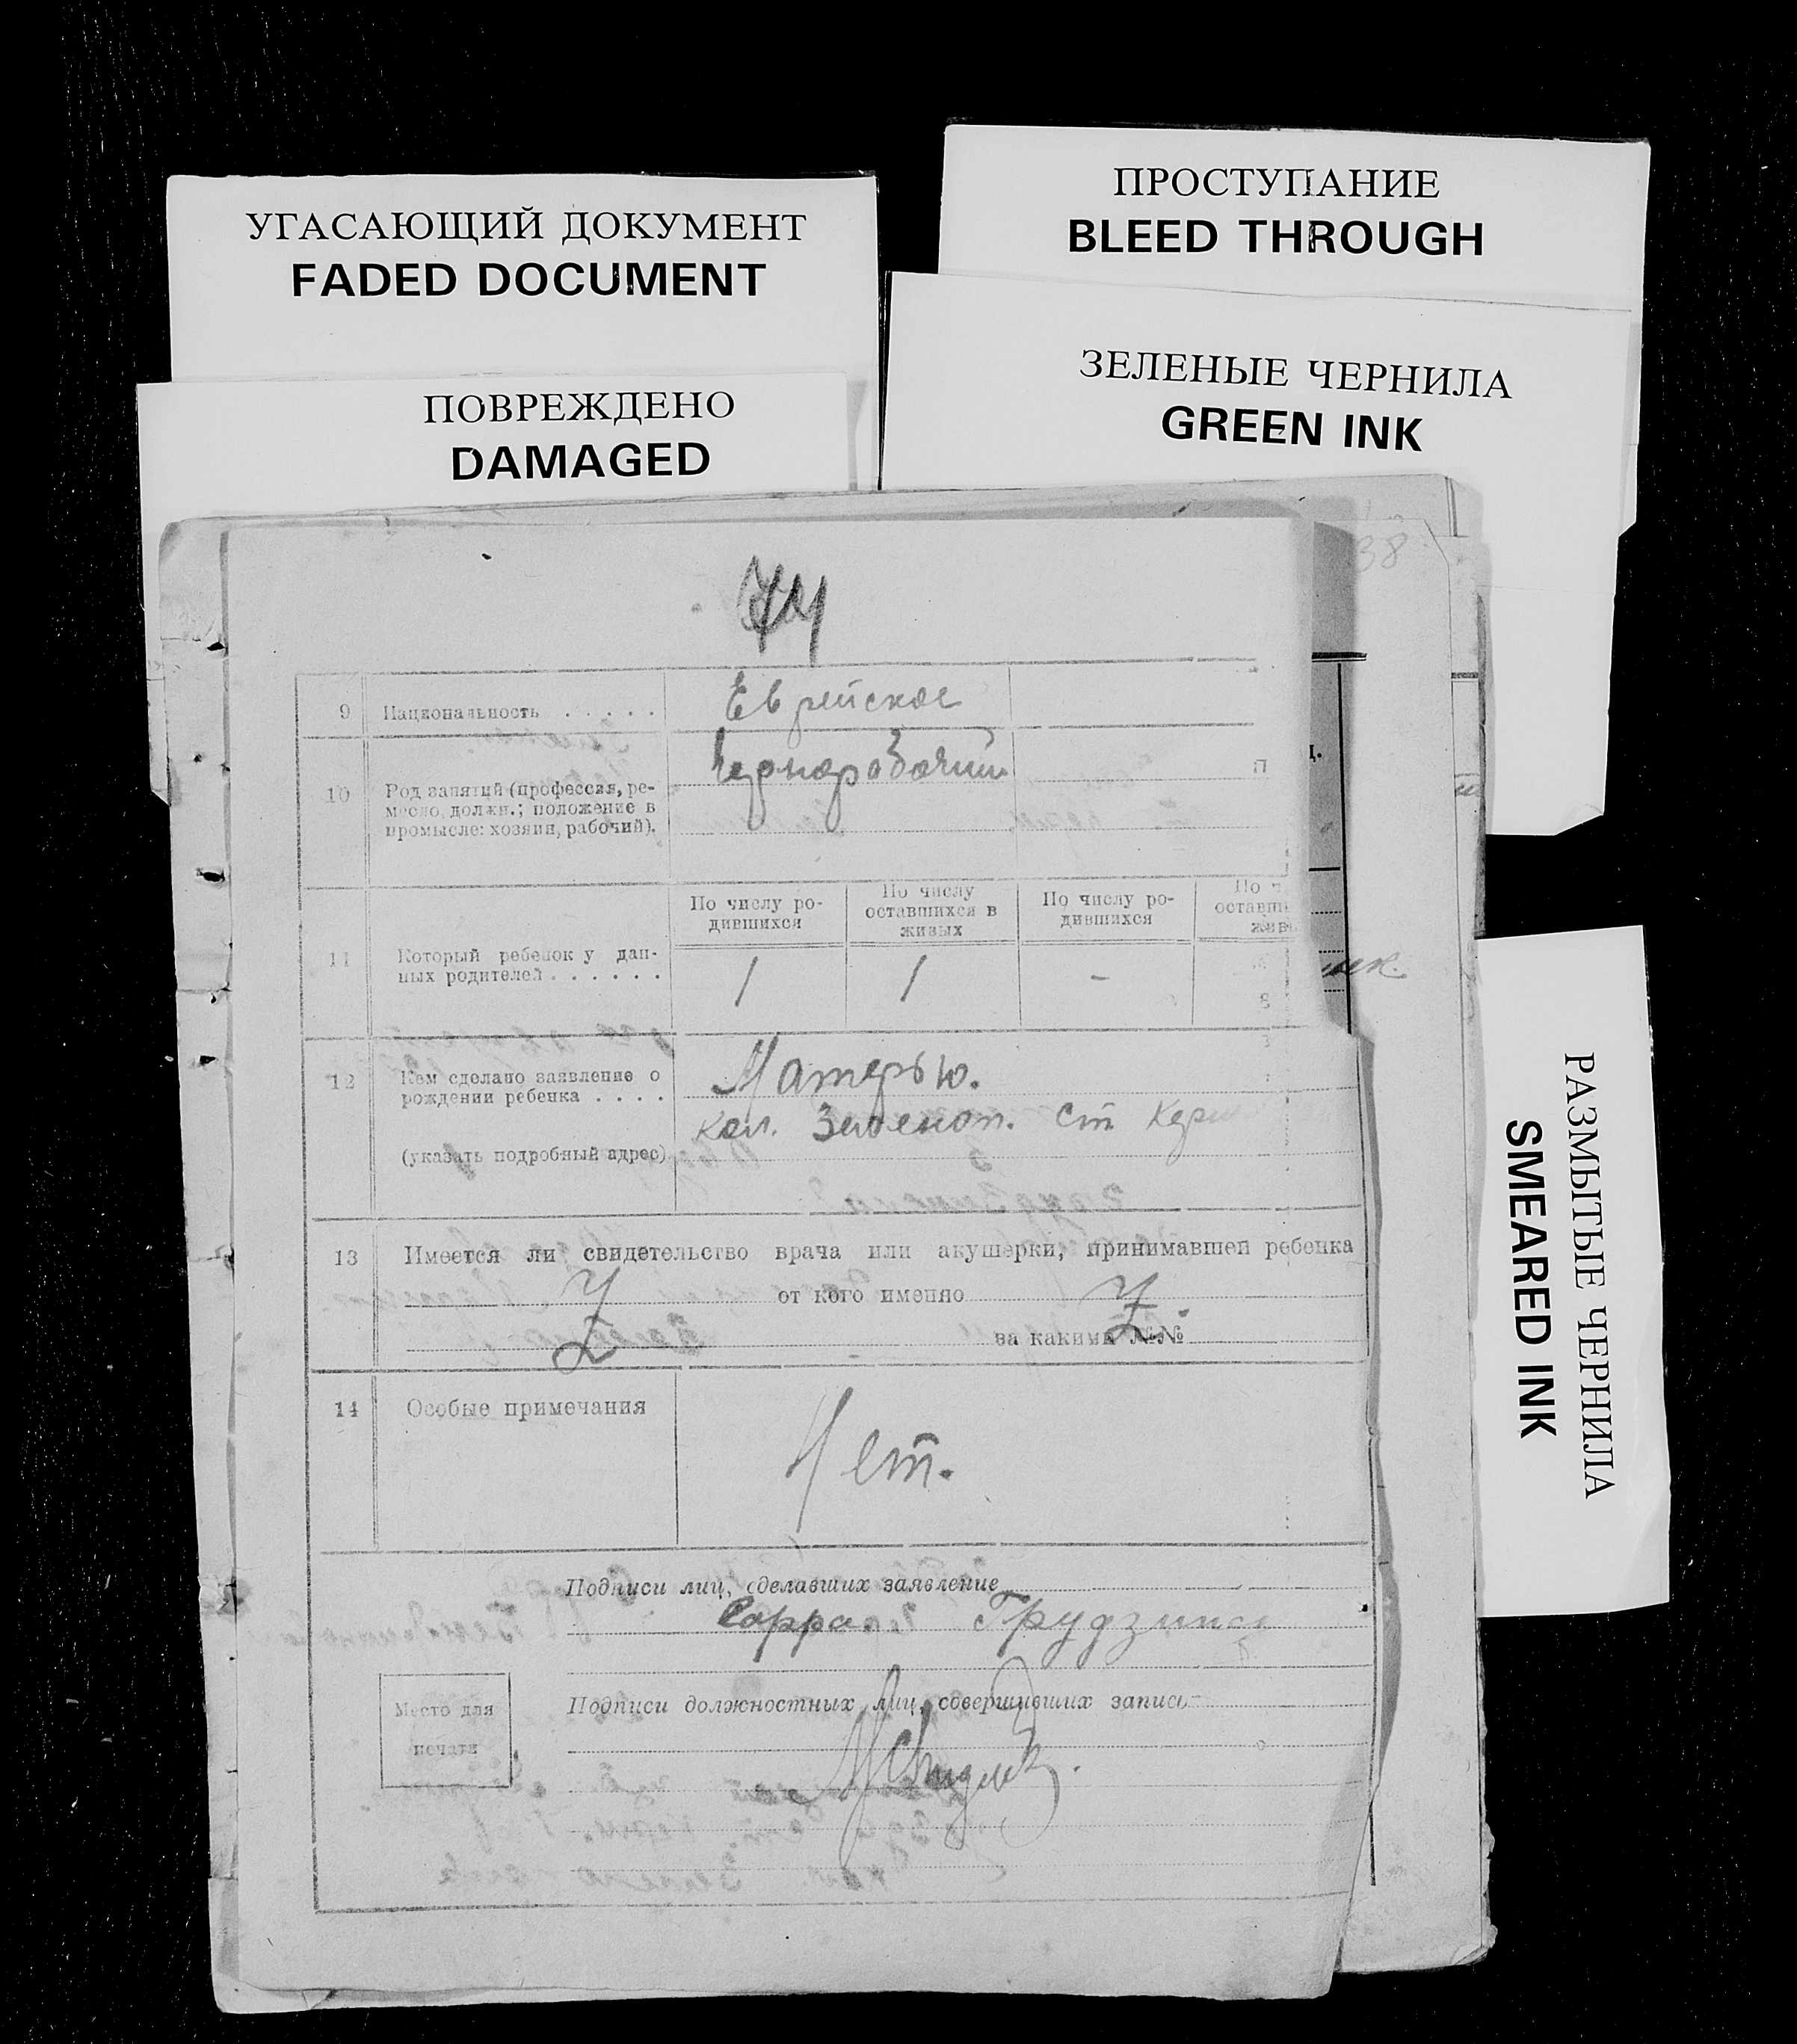 УГАСАЮЩИЙ ДОКУМЕНТ
FADED DOCUMENT
ПРОСТУПАНИЕ
BLEED THROUGH
ПОВРЕЖДЕНО
DAMAGED
ЗЕЛЕНЫЕ ЧЕРНИЛА
GREEN INK
38
9 Национальность . . . . . Еврейское
10 Род занятий (профессия, ре-
месло, должн.; положение в
промысле: хозяин, рабочий).
Чернорабочий
По числу ро-
дившихся
По числу
оставшихся в
живых
По числу ро-
дившихся
По ч
оставши
жив
11 Который ребенок у дан-
ных родителей . . . . . .
1 1 -
12 Кем сделано заявление о
рождении ребенка . . . .
Матерью.
(указать подробный адрес)
ст
13 Имеется ли свидетельство врача или акушерки, принимавшей ребенка
от кого именно
за каким №№
14 Особые примечания
Нет.
Подписи лиц, сделавших заявление
Сарра Грудзинс
Место для
печати
Подписи должностных лиц, совершивших запись
РАЗМЫТЫЕ ЧЕРНИЛА
SMEARED INK